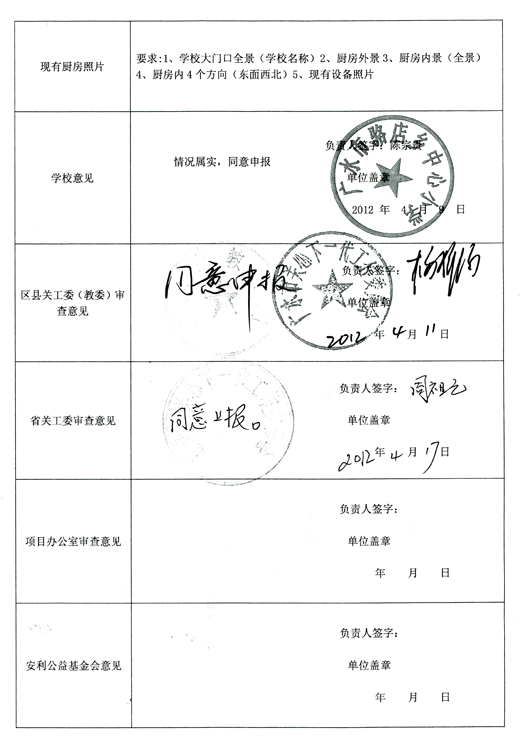 现有厨房照片
要求:1、学校大门口全景（学校名称）2、厨房外景 3、厨房内景（全景）
4、厨房内4个方向（东面西北）5、现有设备照片
学校意见
情况属实，同意申报
负责人签字：陈宗贵
单位盖章
2012 年 4 月 9 日
广水市骆店乡中心小学
区县关工委（教委）审
查意见
同意申报
负责人签字：
单位盖章
2012 年 4 月 11 日
省关工委审查意见
同意上报。
负责人签字：周祖元
单位盖章
2012 年 4 月 17 日
项目办公室审查意见
负责人签字：
单位盖章
年 月 日
安利公益基金会意见
负责人签字：
单位盖章
年 月 日